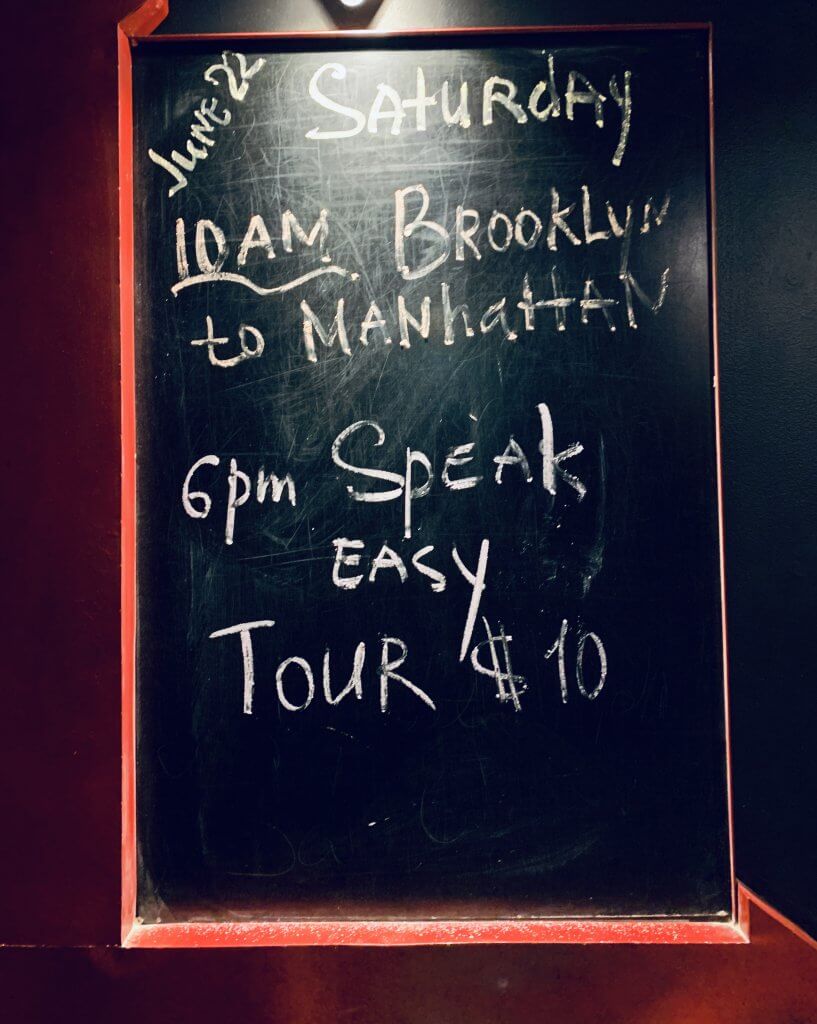 June 22
Saturday
10AM Brooklyn
to Manhattan
6pm Speak
Easy
Tour $10